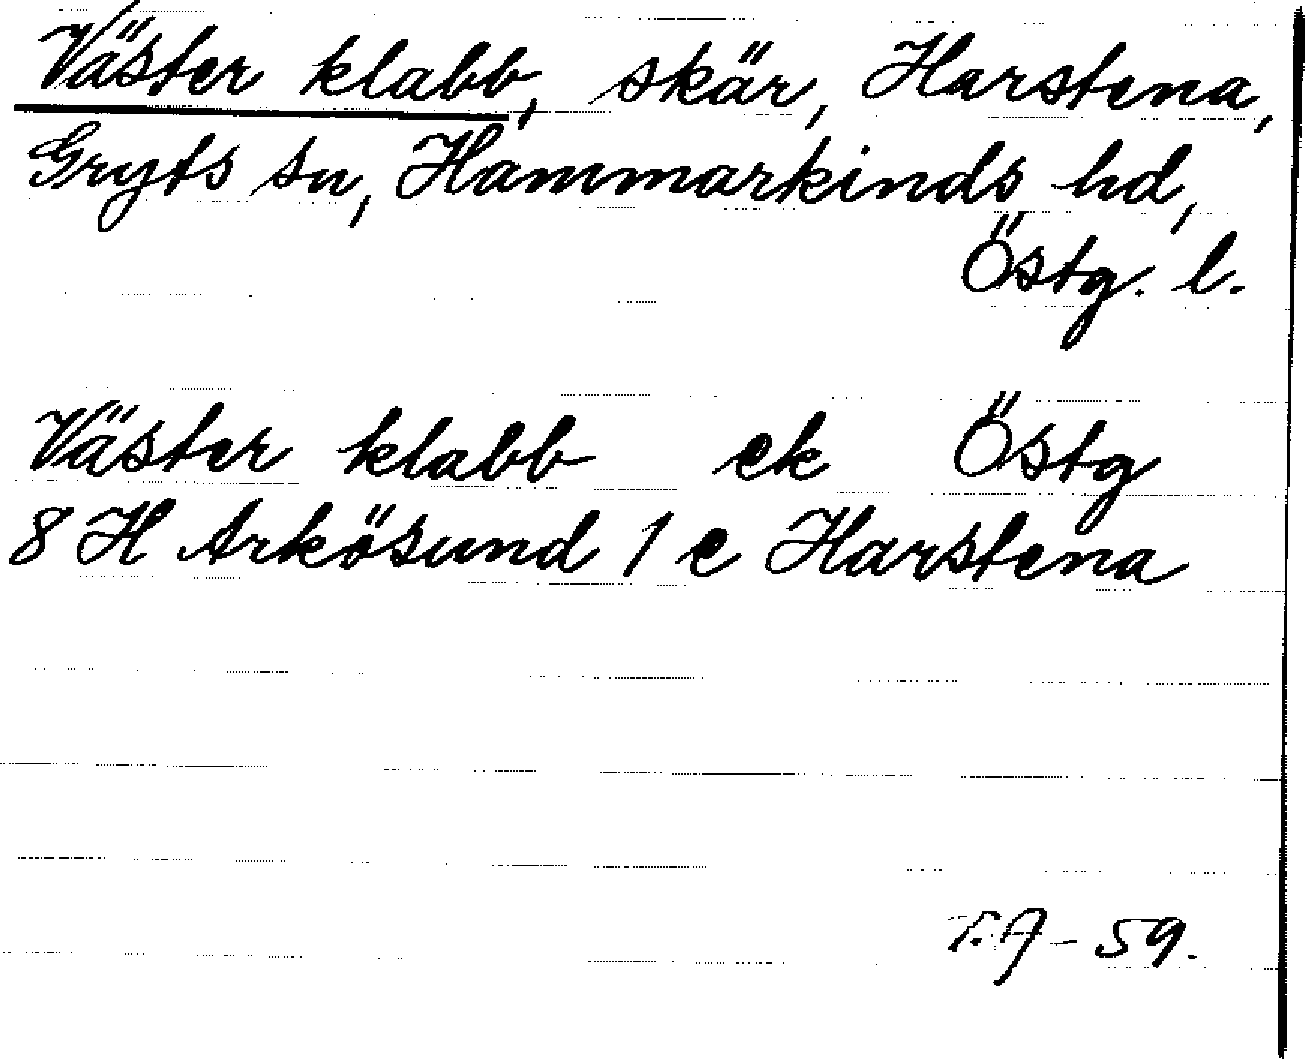 Väster klabb, skär, Harstena,
Gryts sn, Hammarkinds hd,
Östg. l.
Väster klabb ek Östg
8 H Arkösund 1 e Harstena
59.